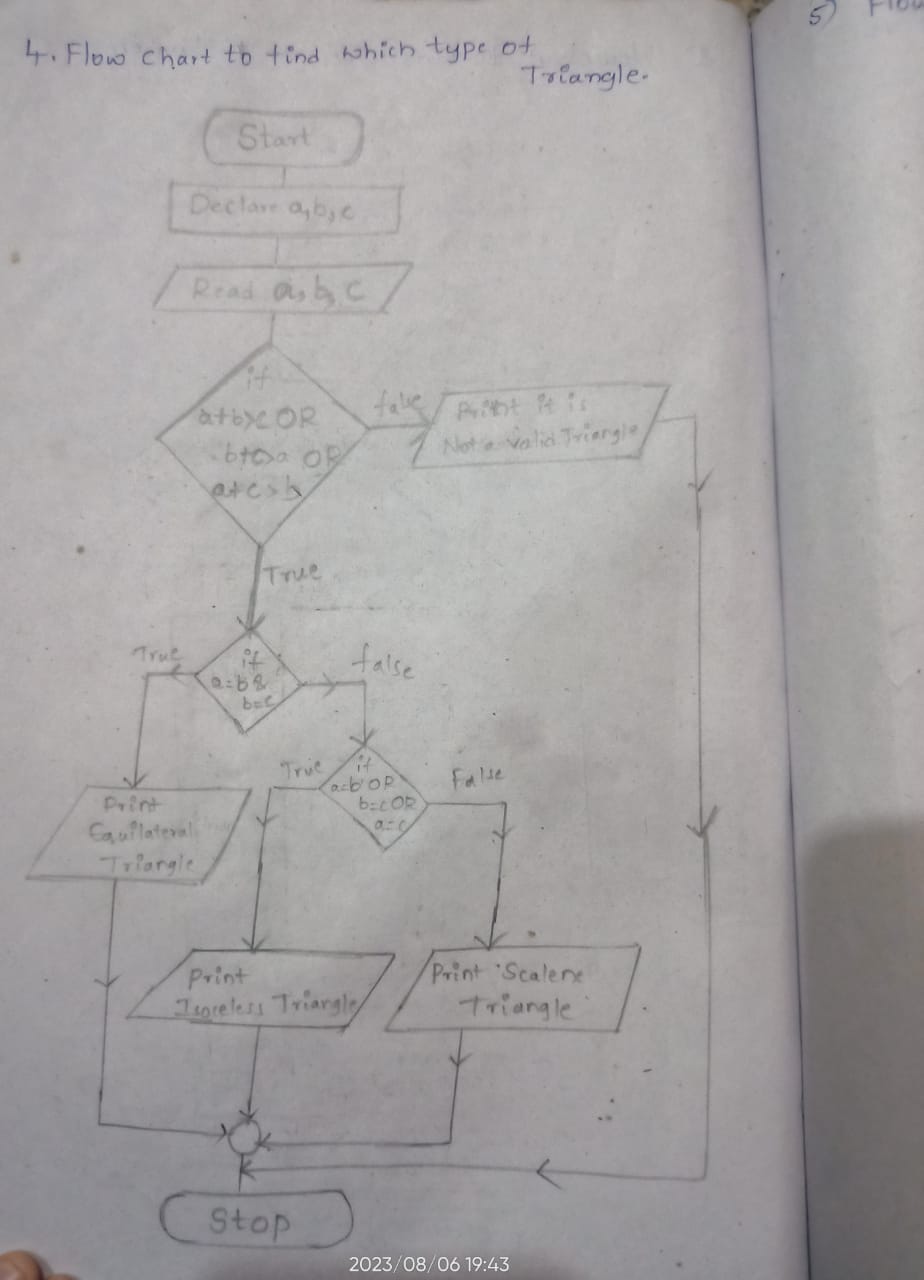 5) Flow
4. Flow chart to find which type of
Triangle.
Start
Declare a,b,c
Read a, b, c
if
a+b>c OR
b+c>a OR
a+c>b
false
Print it is
Not a valid Triangle
True
if
a=b &
b=c
True
false
if
a=b OR
b=c OR
a=c
True
False
Print
Equilateral
Triangle
Print
Isoceless Triangle
Print Scalene
Triangle
Stop
2023/08/06 19:43